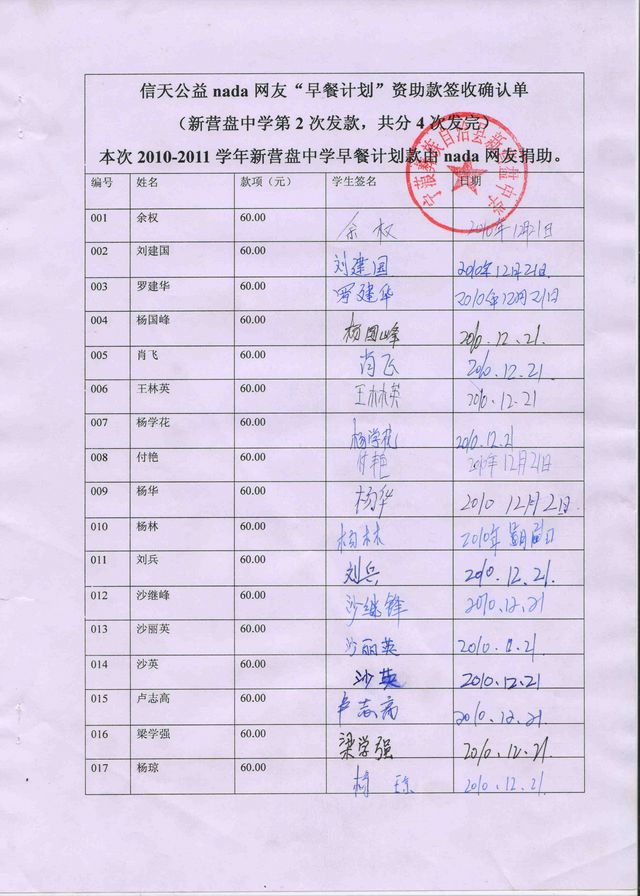 信天公益 nada 网友“早餐计划”资助款签收确认单
（新营盘中学第 2 次发款，共分 4 次发完）
本次 2010-2011 学年新营盘中学早餐计划款由 nada 网友捐助。
宁蒗彝族自治县新营盘中学
编号 姓名 款项（元） 学生签名 日期
001 余权 60.00 余权 2010年12月21日
002 刘建国 60.00 刘建国 2010年12月21日.
003 罗建华 60.00 罗建华 2010年12月21日
004 杨国峰 60.00 杨国峰 2010.12.21.
005 肖飞 60.00 肖飞 2010.12.21.
006 王林英 60.00 王林英 2010.12.21
007 杨学花 60.00 杨学花 2010.12.21
008 付艳 60.00 付艳 2010年12月21日
009 杨华 60.00 杨华 2010 12月21日.
010 杨林 60.00 杨林 2010年
011 刘兵 60.00 刘兵 2010.12.21.
012 沙继峰 60.00 沙继锋 2010.12.21
013 沙丽英 60.00 沙丽英 2010. .21.
014 沙英 60.00 沙英 2010.12.21
015 卢志高 60.00 卢志高 2010.12.21.
016 梁学强 60.00 梁学强 2010.12.21.
017 杨琼 60.00 杨琼 2010.12.21.